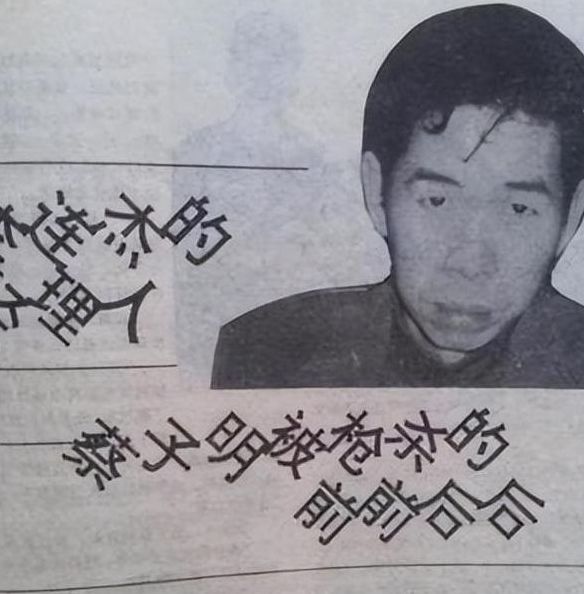 连杰的
理人
蔡子明被枪杀的
前前后后